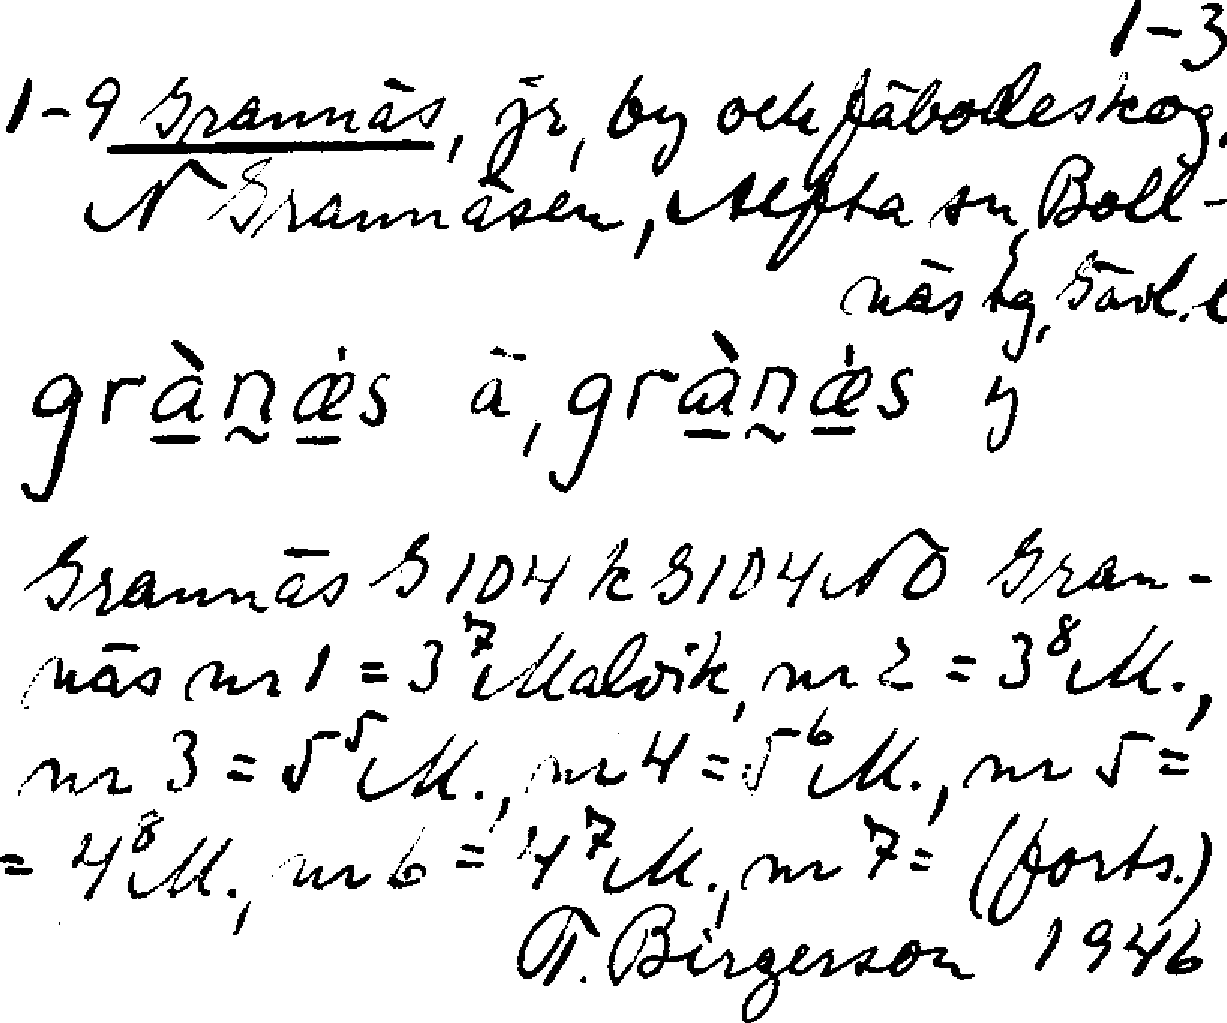 1-3
1-9 Grannäs, jr, by och fäbodeskog,
N Grannäsen, Alfta sn, Boll-
näs tg, Gävl. l
grànæ̀s ä, grànæ̀s y
Grannäs G 104 k G 104 NO Gran-
näs nr 1 = 3⁷ Malvik, nr 2 = 3⁸ M.,
nr 3 = 5⁵ M., nr 4 = 5⁶ M., nr 5 =
= 4⁸ M., nr 6 = 4⁷ M., nr 7 = (forts.)
T. Birgerson 1946